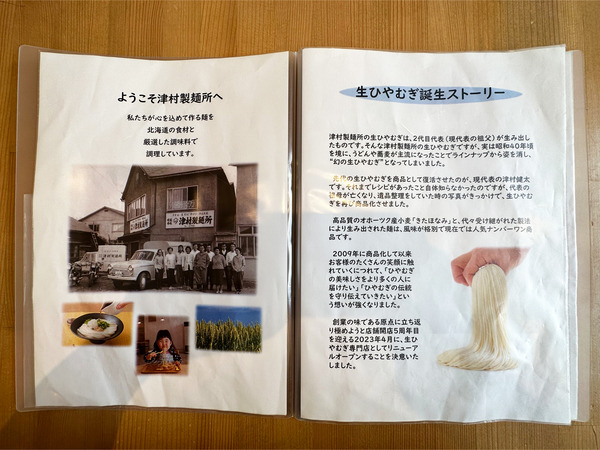 ようこそ津村製麺所へ
私たちが心を込めて作る麺を
北海道の食材と
厳選した調味料で
調理しています。
津村製麺所
生ひやむぎ誕生ストーリー
津村製麺所の生ひやむぎは、2代目代表（現代表の祖父）が生み出し
たものです。そんな津村製麺所の生ひやむぎですが、実は昭和40年頃
を境に、うどんや蕎麦が主流になったことでラインナップから姿を消し、
“幻の生ひやむぎ”となってしまいました。
先代の生ひやむぎを商品として復活させたのが、現代表の津村健太
です。それまでレシピがあったこと自体知らなかったのですが、代表の
祖母が亡くなり、遺品整理をしていた時の写真がきっかけで、生ひやむ
ぎを再び商品化させました。
高品質のオホーツク産小麦「きたほなみ」と、代々受け継がれた製法
により生み出された麺は、風味が格別で現在では人気ナンバーワン商
品です。
2009年に商品化して以来
お客様のたくさんの笑顔に触
れていくにつれて、「ひやむぎ
の美味しさをより多くの人に
届けたい」「ひやむぎの伝統
を守り伝えていきたい」とい
う想いが強くなりました。
創業の味である原点に立ち返
り極めようと店舗開店5周年目
を迎える2023年4月に、生ひ
やむぎ専門店としてリニューア
ルオープンすることを決意いた
しました。